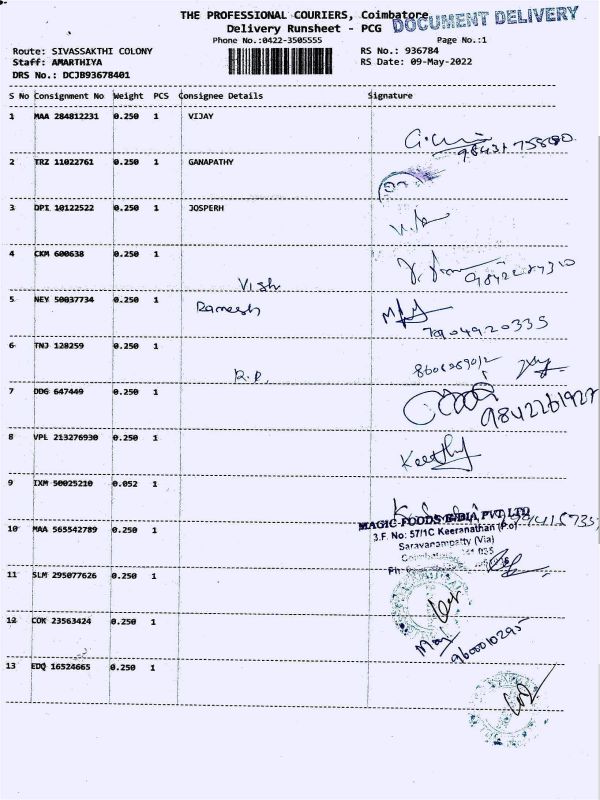 THE PROFESSIONAL COURIERS, Coimbatore
DOCUMENT DELIVERY
Delivery Runsheet - PCG
Phone No.:0422-3505555
Page No.:1
Route: SIVASSAKTHI COLONY
RS No.: 936784
Staff: AMARTHIYA
RS Date: 09-May-2022
DRS No.: DCJB93678401
S No Consignment No Weight PCS Consignee Details Signature
1 MAA 284812231 0.250 1 VIJAY
2 TRZ 11022761 0.250 1 GANAPATHY
3 DPI 10122522 0.250 1 JOSPERH
4 CKM 600638 0.250 1
Vish
5 NEY 50037734 0.250 1 Ramesh
7904920335
6 TNJ 128259 0.250 1
R.P.
7 DDG 647449 0.250 1
9842261927
8 VPL 213276930 0.250 1
Keerthy
9 IXM 50025210 0.052 1
MAGIC FOODS INDIA PVT LTD
3.F. No: 57/1C Keeranatham (P.o)
10 MAA 565542789 0.250 1
Saravanampatty (Via)
11 SLM 295077626 0.250 1
12 COK 23563424 0.250 1
9600010295
13 EDQ 16524665 0.250 1